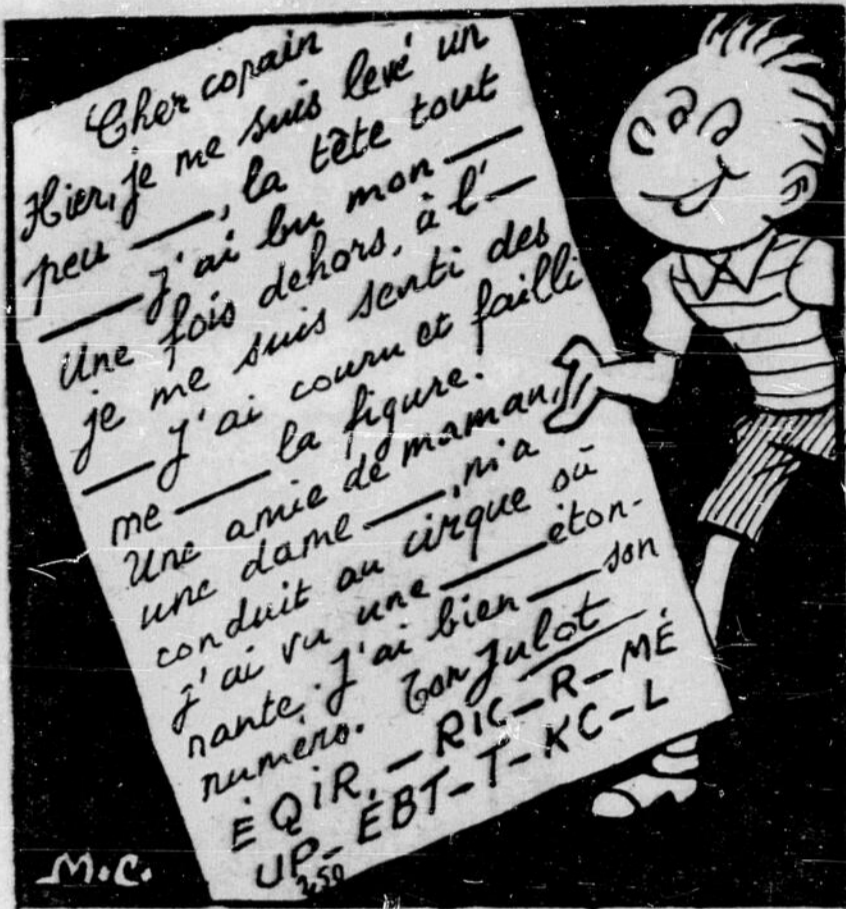 Cher copain
Hier, je me suis levé un
peu ___, la tête tout
___ J'ai bu mon ___
Une fois dehors, à l'___
je me suis senti des
___ J'ai couru et failli
me ___ la figure.
Une amie de maman,
une dame ___, m'a
conduit au cirque où
j'ai vu une ___ éton-
nante. J'ai bien ___ son
numéro. Ton Julot
ÉQIR. — RIC — R — MÉ
UP — ÉBT — T — KC — L
250
M.C.